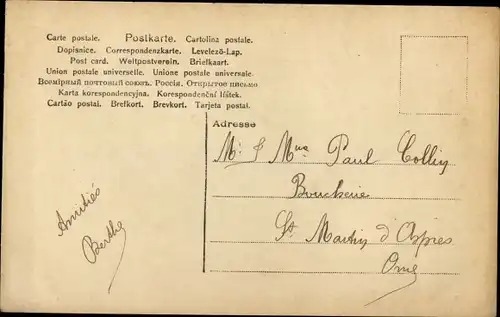 Carte postale. Postkarte. Cartolina postale.
Dopisnice. Correspondenzkarte. Levelező-Lap.
Post card. Weltpostverein. Briefkaart.
Union postale universelle. Unione postale universale.
Всемірный почтовый союзъ. Россія. Открытое письмо
Karta korespondencyjna. Korespondenční lístek.
Cartão postal. Brefkort. Brevkort. Tarjeta postal.
Adresse
Mr & Mme Paul Collin
Boucherie
St Martin d'Aspres
Orne
Amitiés
Berthe